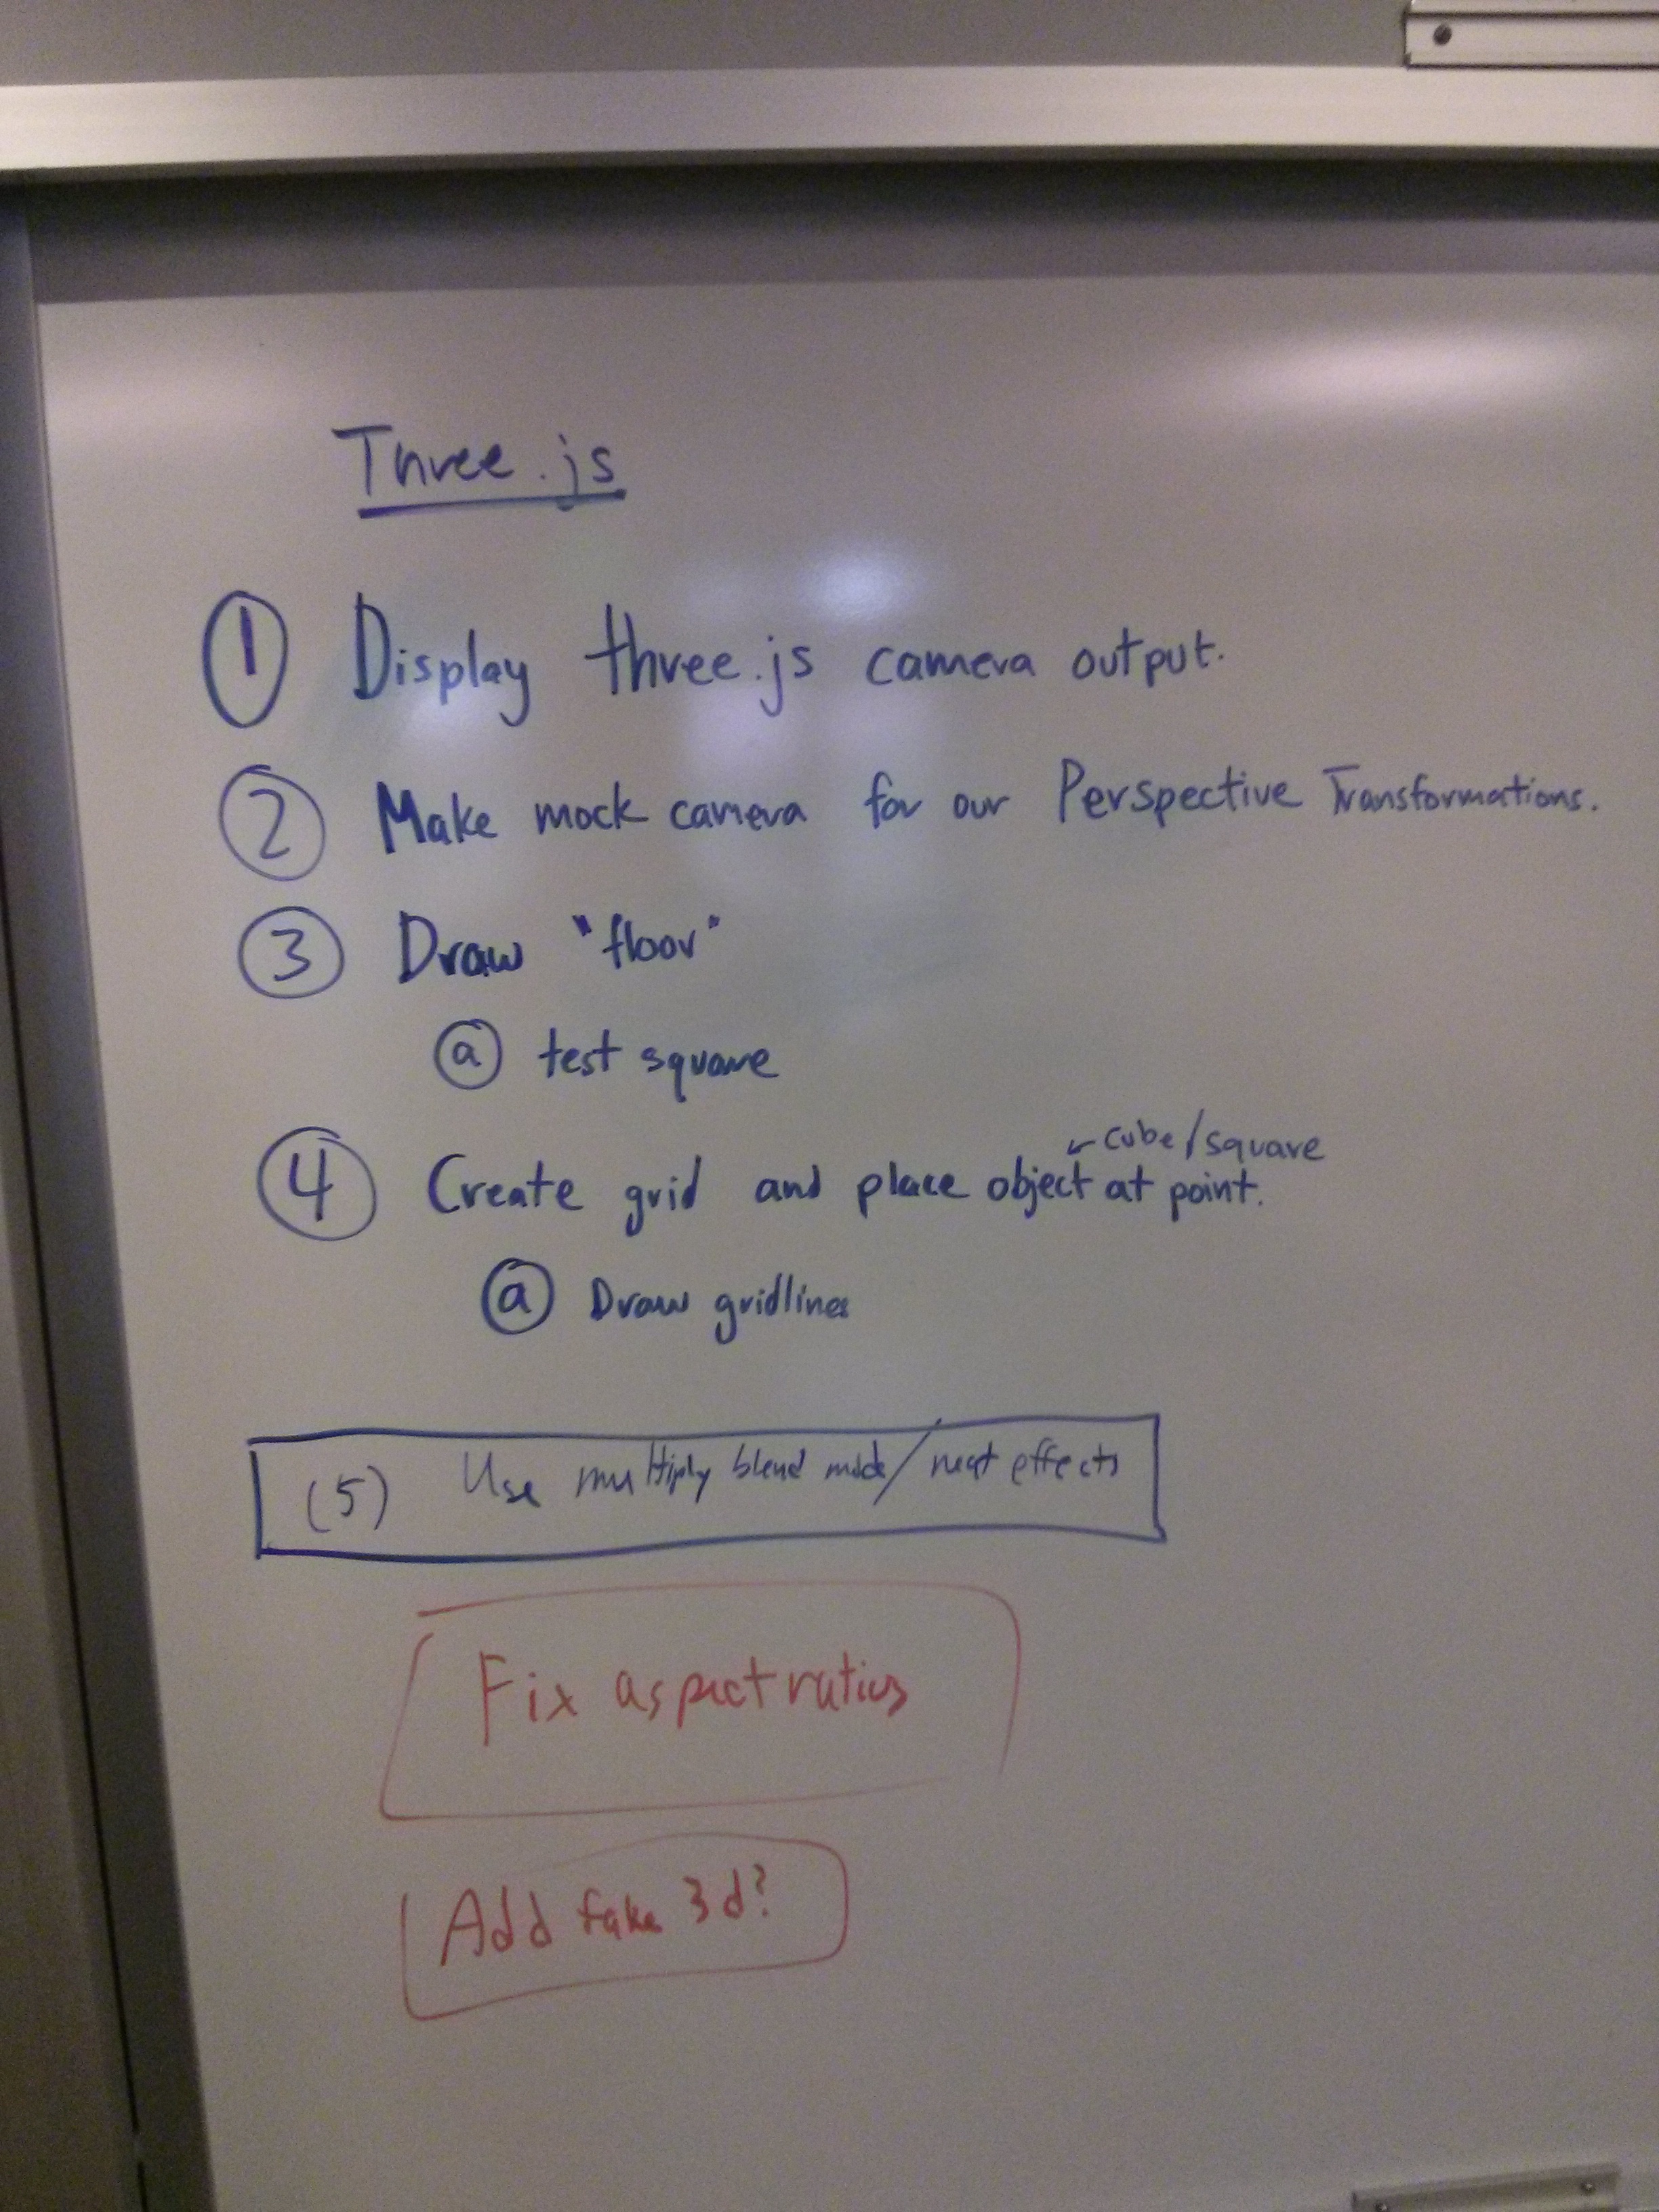 Three.js
1 Display three.js camera output.
2 Make mock camera for our Perspective Transformations.
3 Draw "floor"
a test square
cube/square
4 Create grid and place object at point.
a Draw gridlines
(5) Use multiply blend mode/neat effects
Fix aspect ratios
Add fake 3d?